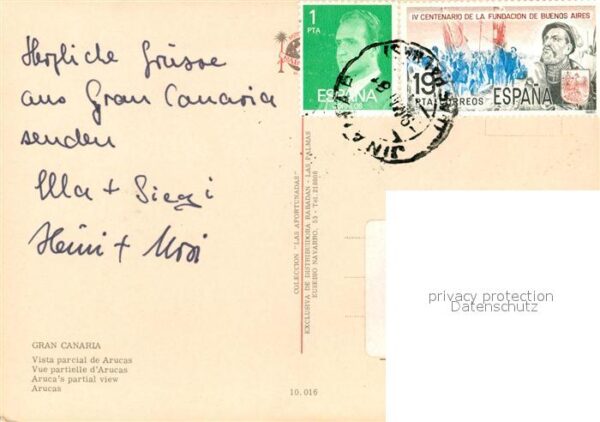 Herzliche Grüsse
aus Gran Canaria
senden
Ulla + Siegi
Heini + Uosi
GRAN CANARIA
Vista parcial de Arucas
Vue partielle d'Arucas
Aruca's partial view
Arucas
COLECCION "LAS AFORTUNADAS"
EXCLUSIVA DE DISTRIBUIDORA BABADAN - LAS PALMAS
EUSEBIO NAVARRO, 53 - Tel. 218808
10.016
1
PTA
ESPAÑA
CORREOS
IV CENTENARIO DE LA FUNDACION DE BUENOS AIRES
19
PTA CORREOS
ESPAÑA
privacy protection
Datenschutz